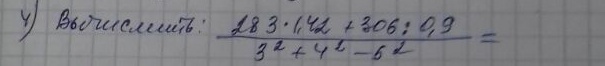 4) Вычислить: (283·1,42 + 306 : 0,9) / (3² + 4² - 6²) =